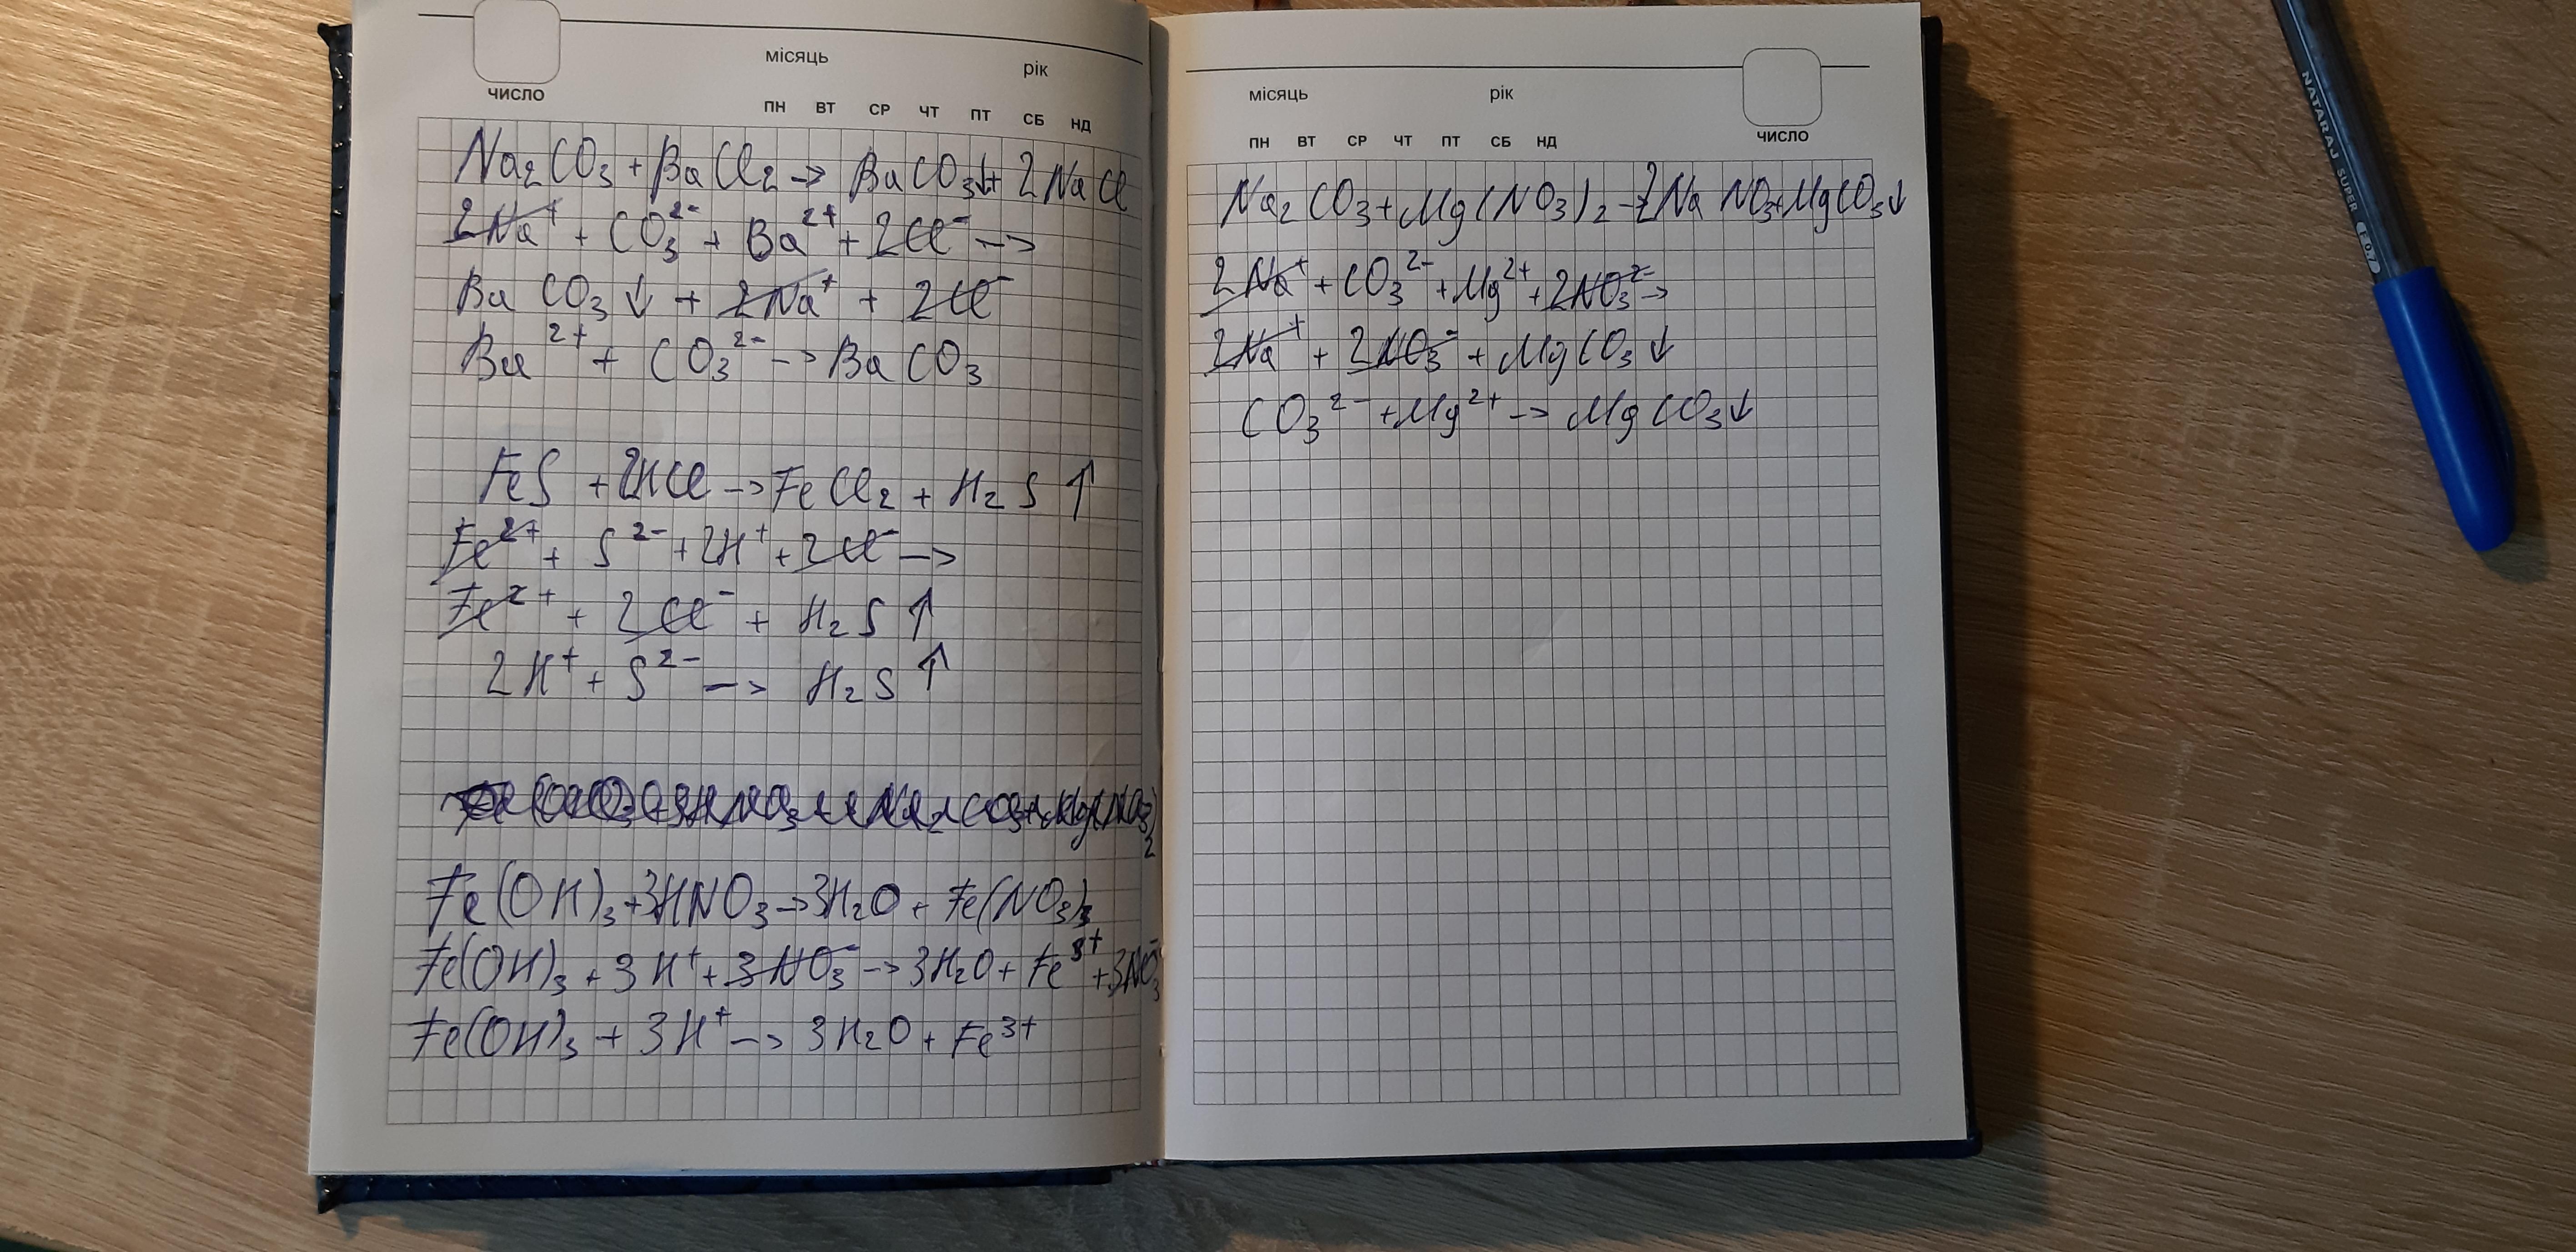 місяць рік
число
пн вт ср чт пт сб нд
Na₂CO₃ + BaCl₂ -> BaCO₃↓ + 2NaCl
2Na⁺ + CO₃²⁻ + Ba²⁺ + 2Cl⁻ ->
BaCO₃↓ + 2Na⁺ + 2Cl⁻
Ba²⁺ + CO₃²⁻ -> BaCO₃
FeS + 2HCl -> FeCl₂ + H₂S↑
Fe²⁺ + S²⁻ + 2H⁺ + 2Cl⁻ ->
Fe²⁺ + 2Cl⁻ + H₂S↑
2H⁺ + S²⁻ -> H₂S↑
Fe(OH)₃ + 3HNO₃ -> 3H₂O + Fe(NO₃)₃
Fe(OH)₃ + 3H⁺ + 3NO₃⁻ -> 3H₂O + Fe³⁺ + 3NO₃⁻
Fe(OH)₃ + 3H⁺ -> 3H₂O + Fe³⁺
місяць рік
число
пн вт ср чт пт сб нд
Na₂CO₃ + Mg(NO₃)₂ -> 2NaNO₃ + MgCO₃↓
2Na⁺ + CO₃²⁻ + Mg²⁺ + 2NO₃²⁻ ->
2Na⁺ + 2NO₃⁻ + MgCO₃↓
CO₃²⁻ + Mg²⁺ -> MgCO₃↓
NATARAJ SUPER F-0.7